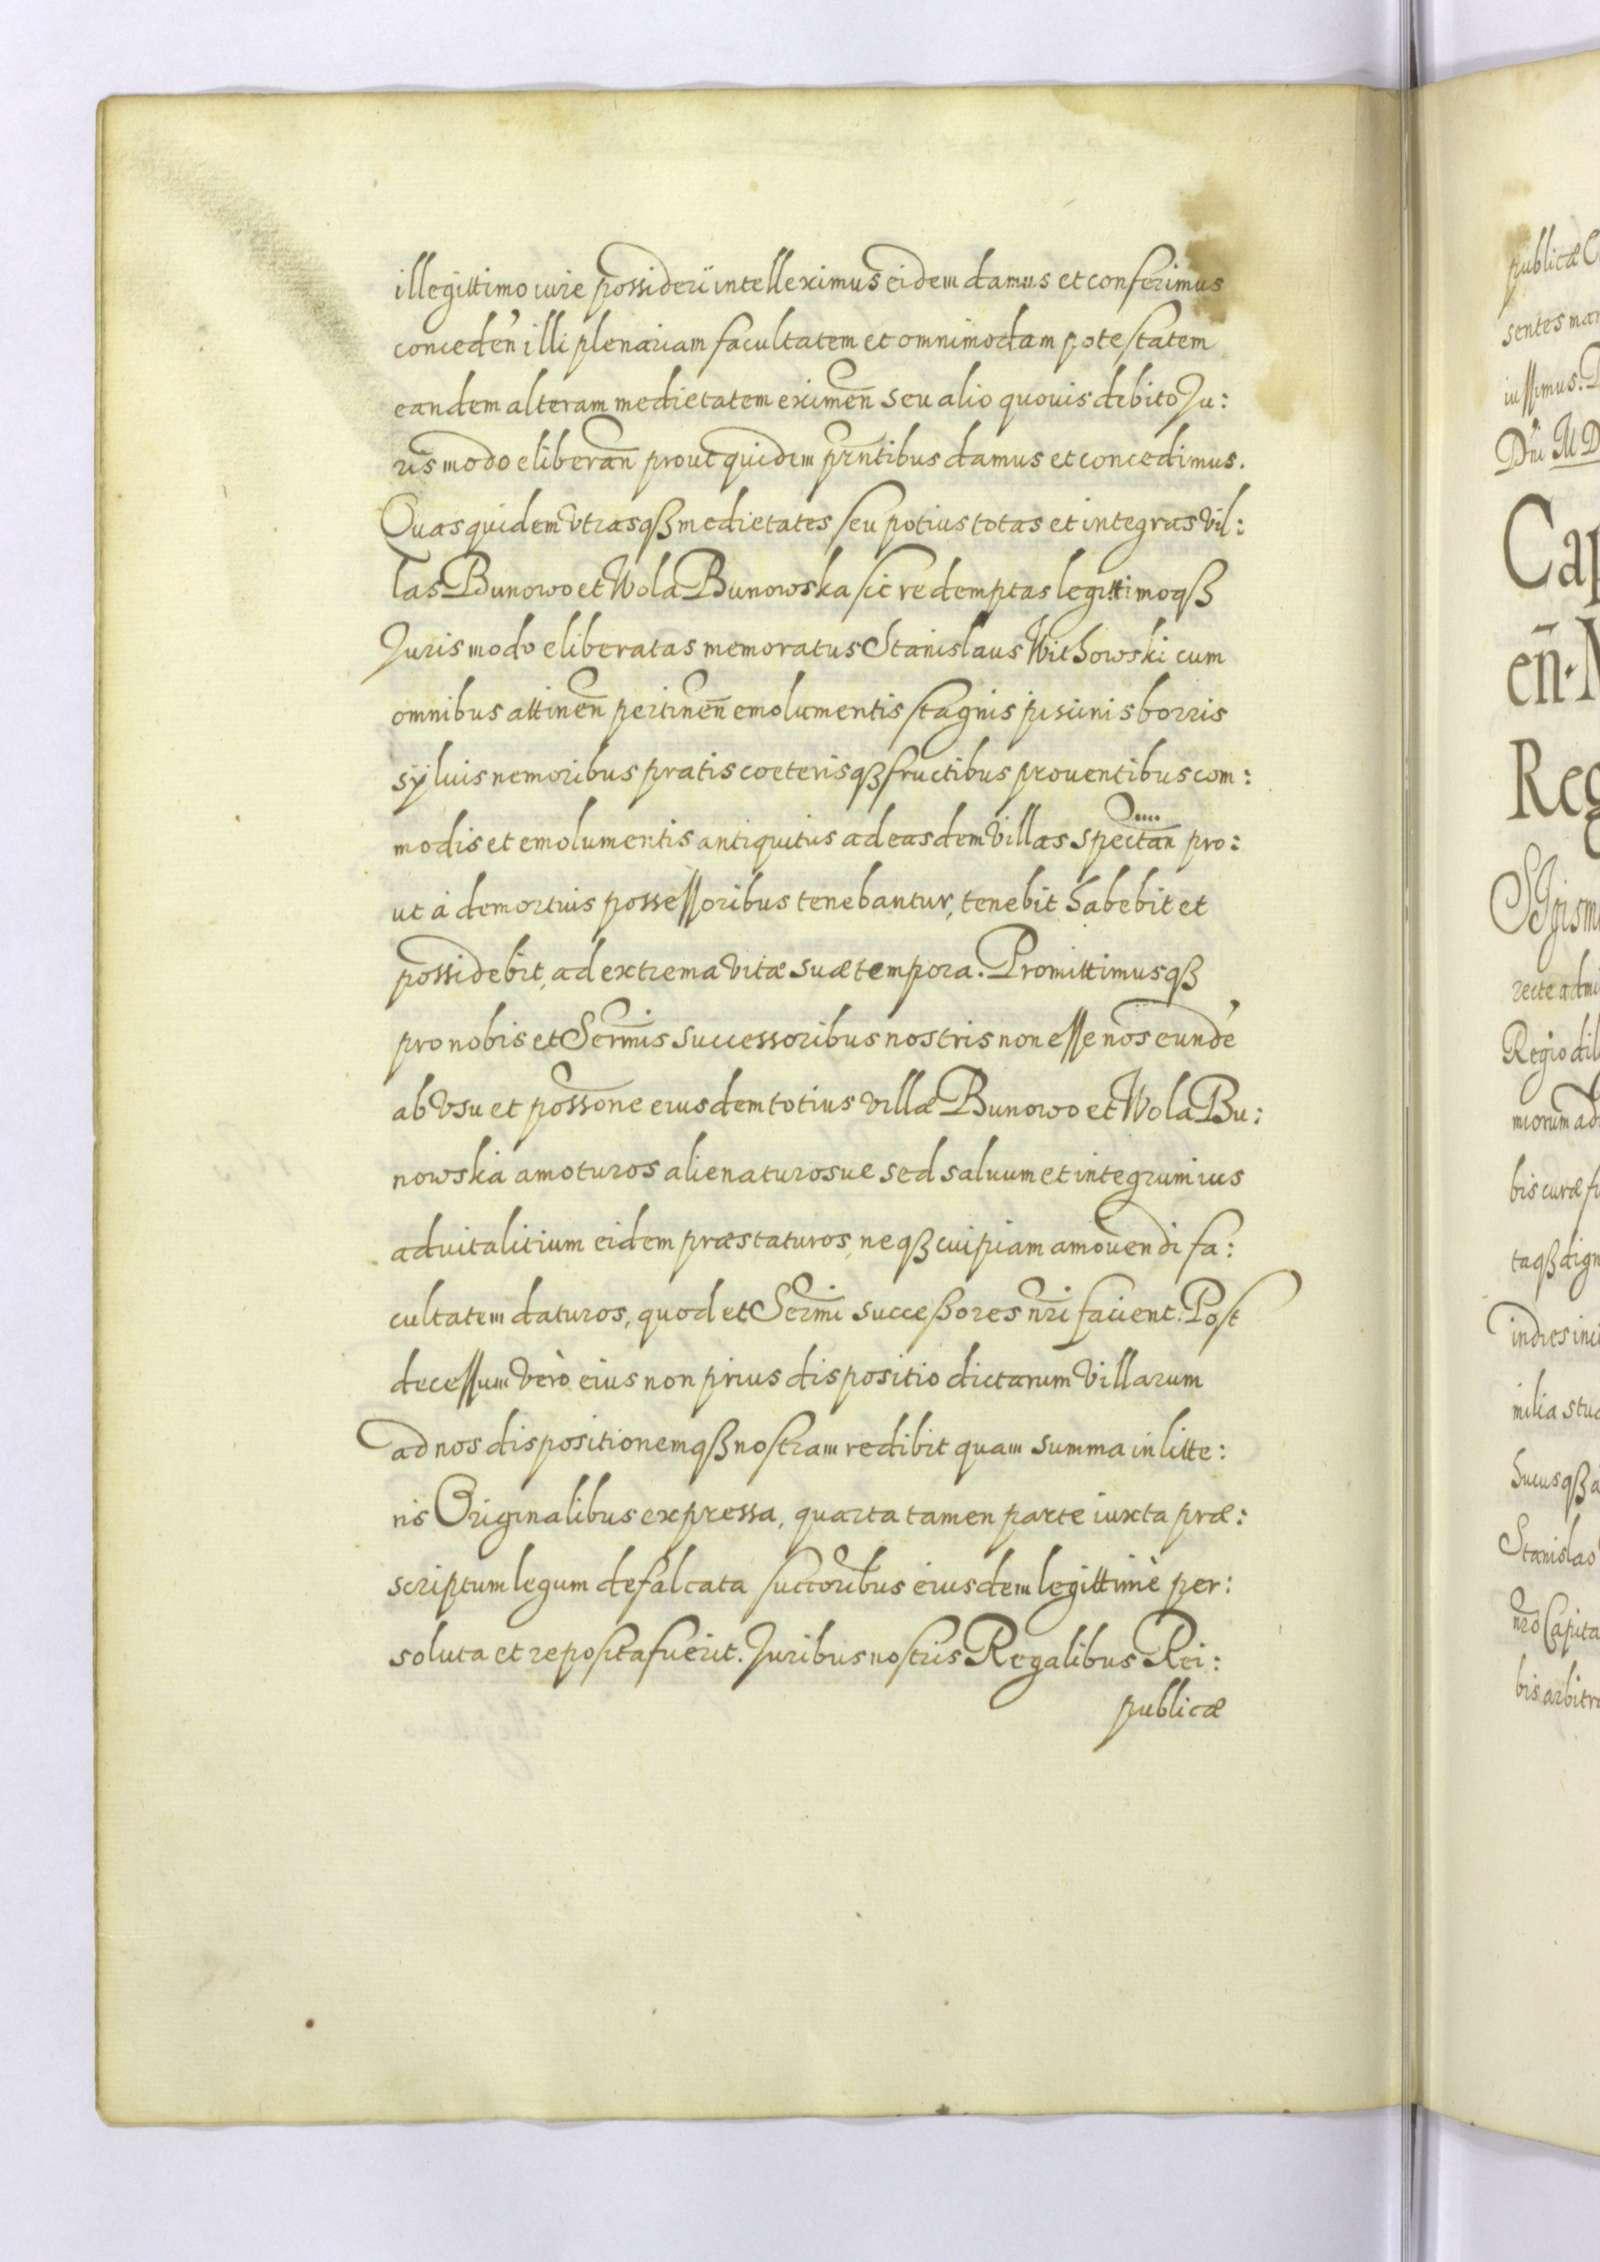 illegittimo iure possideri intelleximus eidem damus et conferimus
conceden illi plenariam facultatem et omnimodam potestatem
eandem alteram medietatem eximen̄ seu alio quouis debito Ju:
ris modo eliberan̄ prout quidem pr̄ntibus damus et concedimus.
Quas quidem vtrasqß medietates seu potius totas et integras vil:
las Bunowo et Wola Bunowska sic redemptas legittimoqß
Juris modo eliberatas memoratus Stanislaus Withowski cum
omnibus attinen̄ pertinen̄ emolumentis stagnis piscinis borris
sÿluis nemoribus pratis coeterisqß fructibus prouentibus com:
modis et emolumentis antiquitus ad easdem villas spectan̄ pro:
ut à demortuis possessoribus tenebantur, tenebit habebit et
possidebit, ad extrema vitæ suæ tempora. Promittimusqß
pro nobis et Serm̄is successoribus nostris non esse nos eundē
ab vsu et possōne eiusdem totius villæ Bunowo et Wola Bu:
nowska amoturos alienaturosue sed saluum et integrum ius
aduitalitium eidem præstaturos, neqß cuipiam amouendi fa:
cultatem daturos, quod et Serm̄i succeßores nr̄i facient. Post
decessum verò eius non prius dispositio dictarum villarum
ad nos dispositionemqß nostram redibit quam summa in litte:
ris Originalibus expressa, quarta tamen parte iuxta præ:
scriptum legum defalcata succoribus eiusdem legittimè per:
soluta et reposita fuerit. Juribus nostris Regalibus Rei:
publicæ
publicæ
sentes
iussimus.
Dn̄i M D
Cap
en̄.
Reg
recte
Regio
bis curæ
taqß
indies
milia
Stanislao
nr̄o Capita
bis arbitr